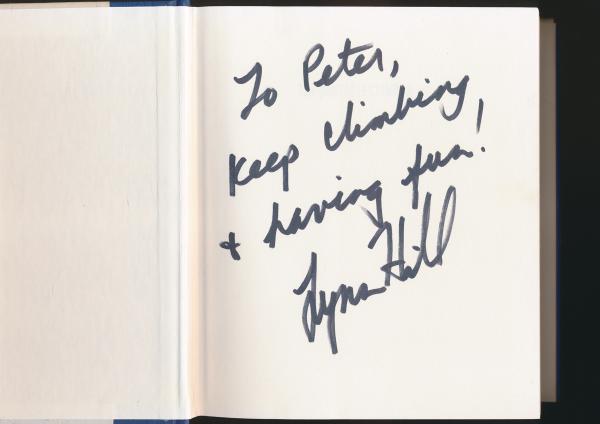 To Peter,
Keep climbing,
+ having fun!
Lynn Hill